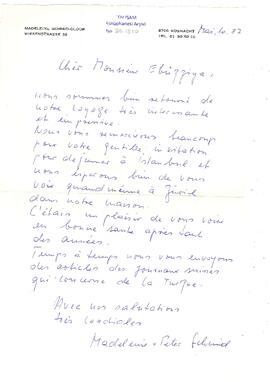 MADELEINE SCHMID-GLOOR
TH/İSAM
Kütüphanesi Arşivi
No
8700 KÜSNACHT
Mai, 10. 82
Cher Monsieur Ebüzziya,
nous sommes bien retourné de
notre voyage très interessante
et empressive.
Nous vous remercions beaucoup
pour votre gentille invitation
pour dejeuner à Istanbul et
nous espérons bien de vous
voir quand même à Zürich
dans notre maison.
C'étais un plaisir de vous voir
en bonne santé après tant
des années.
Temps à temps nous vous envoyons
des articles des journaux suisses
qui concerne de la Turquie.
Avec nos salutations
très cordiales
Madeleine + Peter Schmid